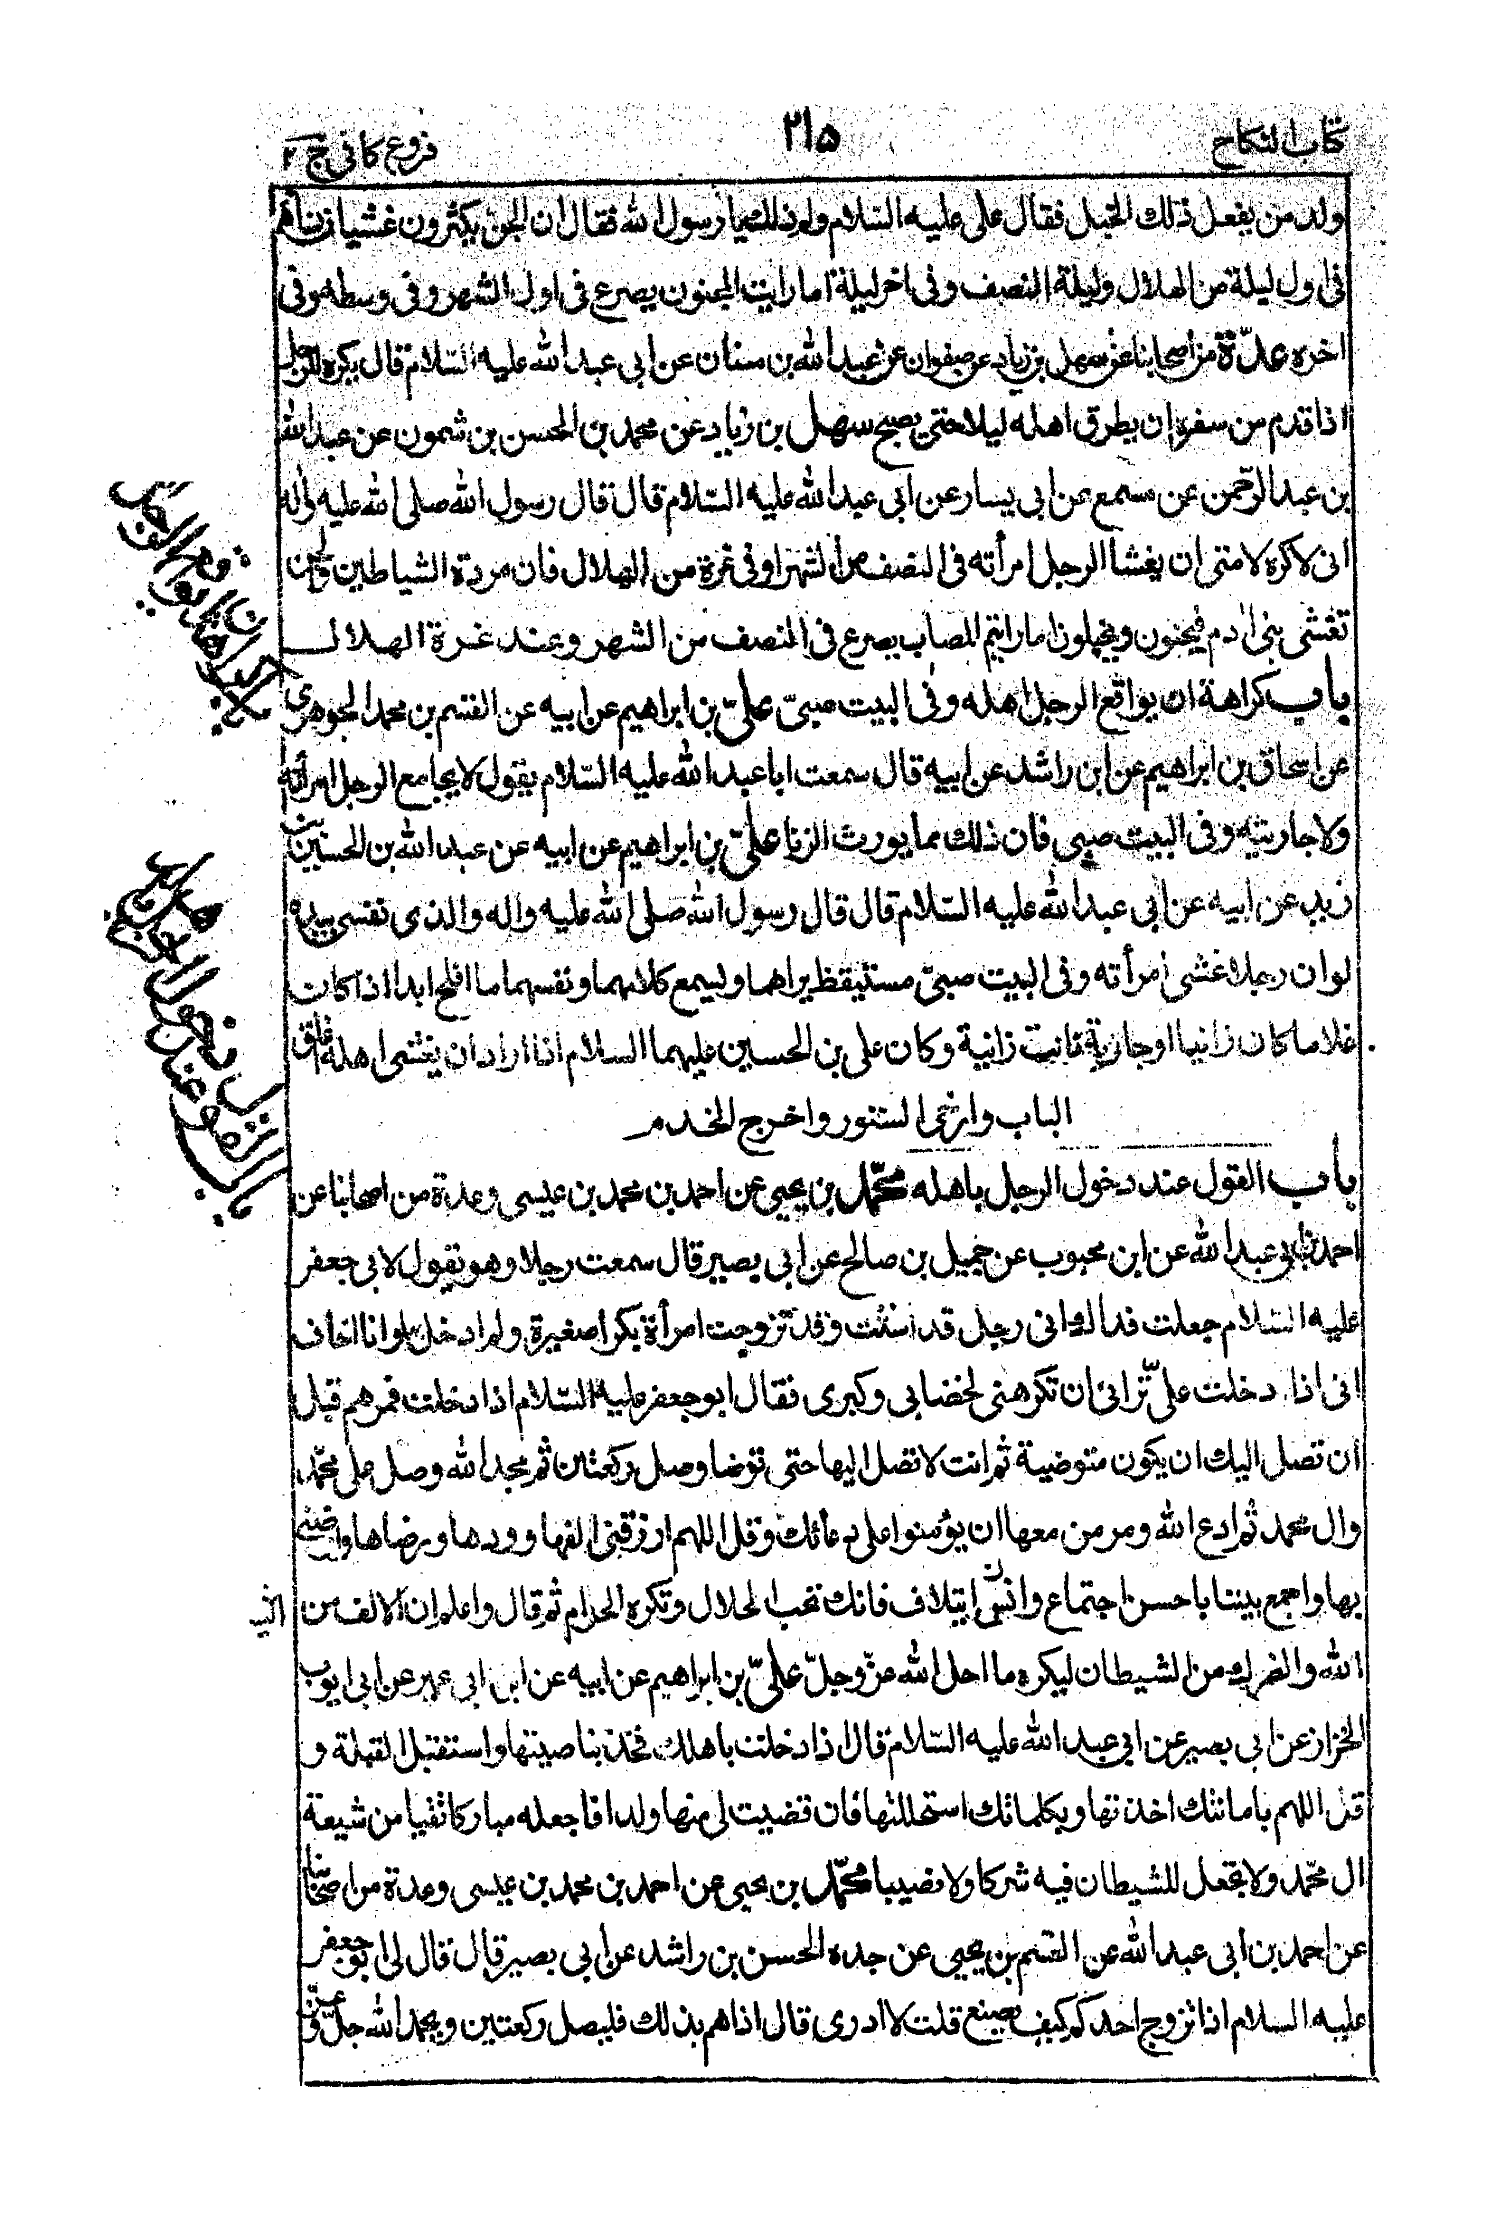 كتاب النكاح
٢١٥
فروع كافي ج ٢
ولد من يفعل ذلك الخبل فقال علي عليه السّلام ولم ذلك يا رسول الله فقال ان الجن يكثرون غشيان نسائهم
في اول ليلة من الهلال وليلة النصف وفي اخر ليلة اما رايت المجنون يصرع في اول الشهر وفي وسطه وفي
اخره عدّة من أصحابنا عن سهل بن زياد عن صفوان عن عبد الله بن سنان عن ابي عبد الله عليه السّلام قال يكره للرجل
اذا قدم من سفره ان يطرق اهله ليلا حتى يصبح سهل بن زياد عن محمد بن الحسن بن شمون عن عبد الله
بن عبد الرّحمن عن مسمع عن ابي يسار عن ابي عبد الله عليه السّلام قال قال رسول الله صلى الله عليه واله
اني لاكره لامتي ان يغشا الرجل امرأته في النصف من الشهر او في غرة من الهلال فان مردة الشياطين والجن
تغشى بني ادم فيجنون ويخبلون اما رايتم المصاب يصرع في النصف من الشهر وعند غرة الهلال
باب كراهة ان يواقع الرجل اهله وفي البيت صبيّ عليّ بن ابراهيم عن ابيه عن القسم بن محمد الجوهري
عن اسحاق بن ابراهيم عن ابن راشد عن ابيه قال سمعت ابا عبد الله عليه السّلام يقول لا يجامع الرجل امرأته
ولا جاريته وفي البيت صبي فان ذلك مما يورث الزنا عليّ بن ابراهيم عن ابيه عن عبد الله بن الحسين بن
زيد عن ابيه عن ابي عبد الله عليه السّلام قال قال رسول الله صلى الله عليه واله والذي نفسي بيده
لو ان رجلا غشى امرأته وفي البيت صبيّ مستيقظ يراهما ويسمع كلامهما ونفسهما ما افلح ابدا اذا كان
غلاما كان زانيا او جارية كانت زانية وكان علي بن الحسين عليهما السلام اذا اراد ان يغشى اهله اغلق
الباب وارخى الستور واخرج الخدم
باب القول عند دخول الرجل باهله محمّد بن يحيى عن احمد بن محمد بن عيسى وعدة من اصحابنا عن
احمد بن ابي عبد الله عن ابن محبوب عن جميل بن صالح عن ابي بصير قال سمعت رجلا وهو يقول لابي جعفر
عليه السّلام جعلت فداك اني رجل قد اسننت وقد تزوجت امرأة بكرا صغيرة ولم ادخل بها وانا اخاف
اني اذا دخلت عليّ تراني ان تكرهني لخضابي وكبري فقال ابو جعفر عليه السّلام اذا دخلت فمرهم قبل
ان تصل اليك ان يكون متوضية ثم انت لا تصل اليها حتى توضا وصل ركعتين ثم مجد الله وصل على محمّد
وال محمد ثم ادع الله ومر من معها ان يؤمنوا على دعائك وقل اللهم ارزقني الفها وودها ورضاها وارضني
بها واجمع بيننا باحسن اجتماع وانس ايتلاف فانك تحب الحلال وتكره الحرام ثم قال واعلم ان الالف من
الله والفرك من الشيطان ليكره ما احل الله عزّ وجلّ عليّ بن ابراهيم عن ابيه عن ابن ابي عمير عن ابي ايوب
الخزاز عن ابي بصير عن ابي عبد الله عليه السّلام قال اذا دخلت باهلك فخذ بناصيتها واستقبل القبلة و
قل اللهم بامانتك اخذتها وبكلماتك استحللتها فان قضيت لي منها ولدا فاجعله مباركا تقيا من شيعة
ال محمّد ولا تجعل للشيطان فيه شركا ولا نصيبا محمّد بن يحيى عن احمد بن محمد بن عيسى وعدة من اصحابنا
عن احمد بن ابي عبد الله عن القسم بن يحيى عن جده الحسن بن راشد عن ابي بصير قال قال لي ابو جعفر
عليه السلام اذا تزوج احدكم كيف يصنع قلت لا ادري قال اذا هم بذلك فليصل ركعتين ويحمد الله جلّ وعزّ